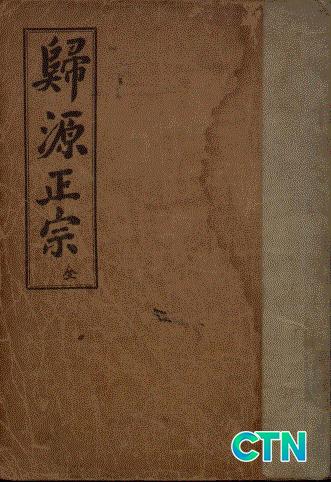 歸源正宗 全
CTN